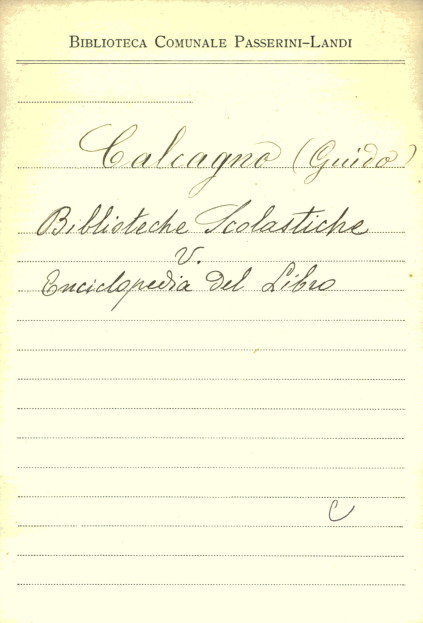 Biblioteca Comunale Passerini-Landi
Calcagno (Guido)
Biblioteche Scolastiche
V.
Enciclopedia del Libro
C